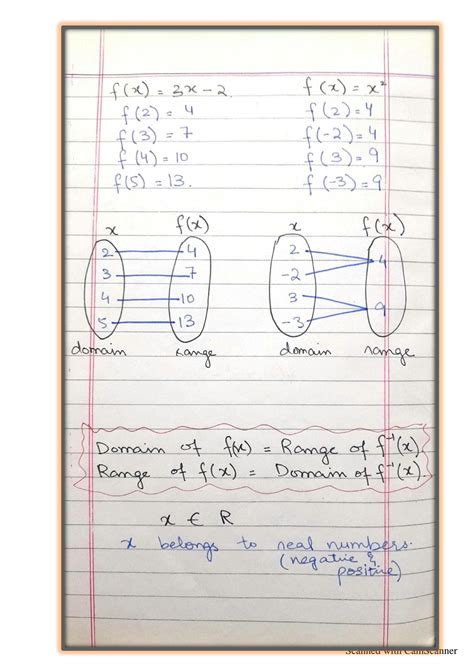 f(x) = 3x - 2
f(2) = 4
f(3) = 7
f(4) = 10
f(5) = 13.
f(x) = x²
f(2) = 4
f(-2) = 4
f(3) = 9
f(-3) = 9
x f(x)
2 4
3 7
4 10
5 13
domain range
x f(x)
2
-2
3
-3
4
9
domain range
Domain of f(x) = Range of f⁻¹(x).
Range of f(x) = Domain of f⁻¹(x).
x ∈ R
x belongs to real numbers.
(negative &
positive)
Scanned with CamScanner